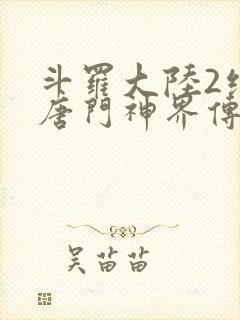 斗羅大陸2
唐門神界傳
吳苗苗